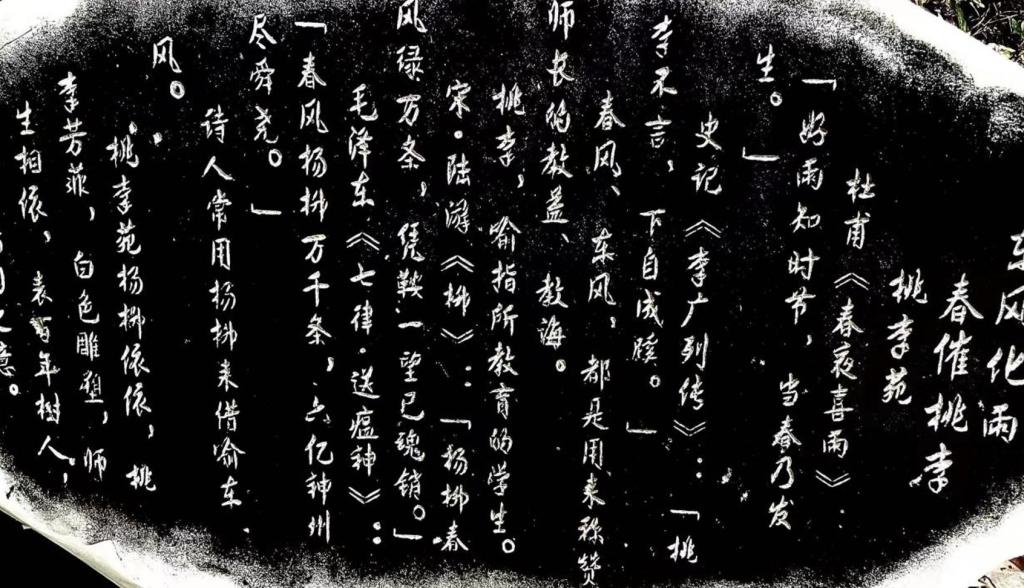 东风化雨
春催桃李
桃李苑
杜甫《春夜喜雨》:
「好雨知时节,当春乃发
生。」
史记《李广列传》:「桃
李不言,下自成蹊。」
春风、东风,都是用来称赞
师长的教益、教海。
桃李,喻指所教育的学生。
宋·陆游《柳》:「杨柳春
风绿万条,凭鞍一望已魂销。」
毛泽东《七律·送瘟神》:
「春风杨柳万千条,六亿神州
尽舜尧。」
诗人常用杨柳来借喻东
风。
桃李苑杨柳依依,桃
李芳菲,白色雕塑,师
生相依,表百年树人,
之意。